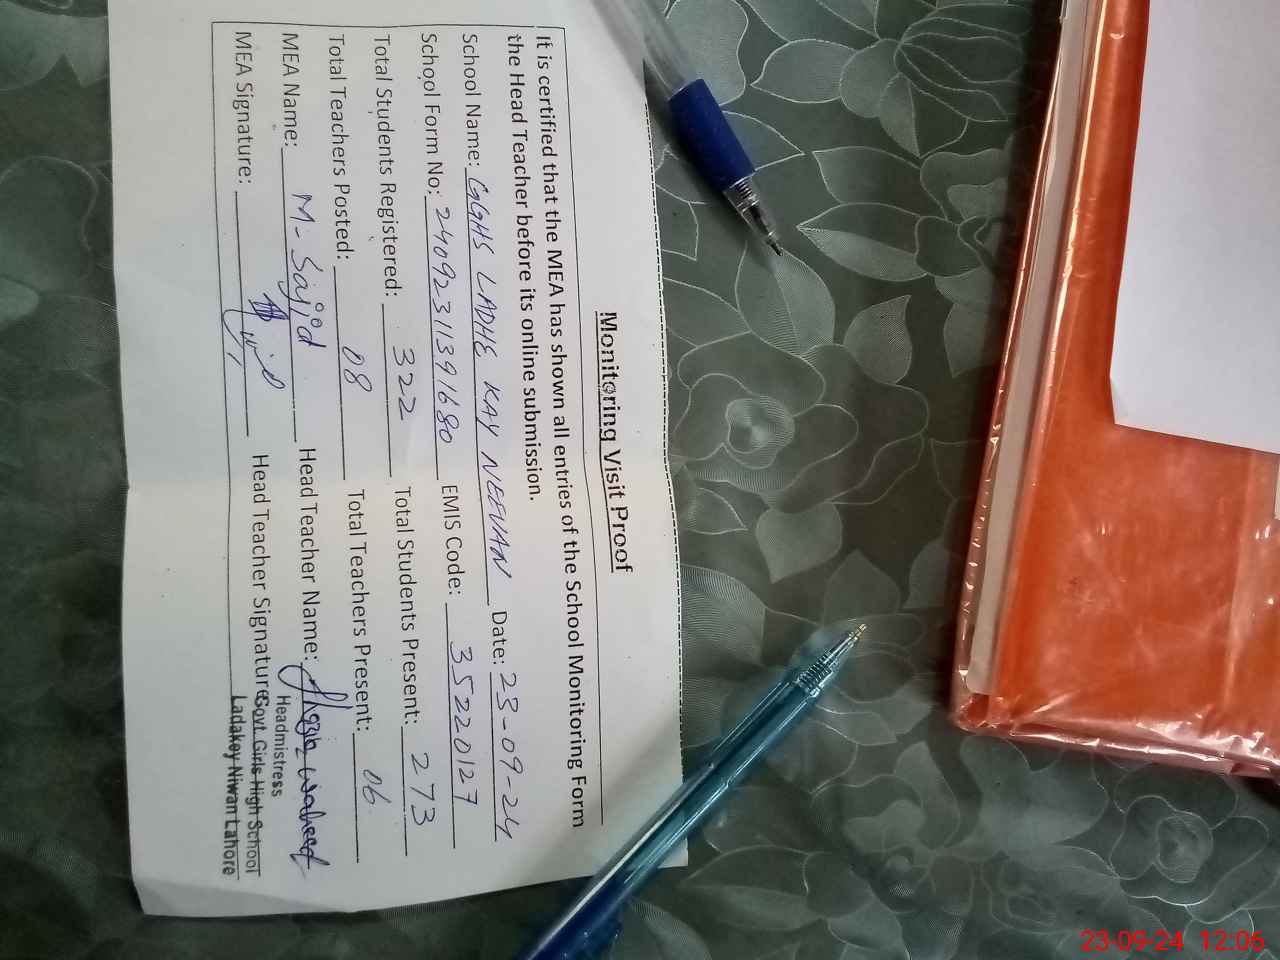 Monitoring Visit Proof
It is certified that the MEA has shown all entries of the School Monitoring Form
the Head Teacher before its online submission.
School Name: GGHS LADHE KAY NEEVAN Date: 23-09-24
School Form No: 24092311391680 EMIS Code: 35220127
Total Students Registered: 322 Total Students Present: 273
Total Teachers Posted: 08 Total Teachers Present: 06
MEA Name: M- Sajid Head Teacher Name: Waheed
MEA Signature: Head Teacher Signature
Headmistress
Govt. Girls High School
Ladakey Niwan Lahore
23-09-24 12:06